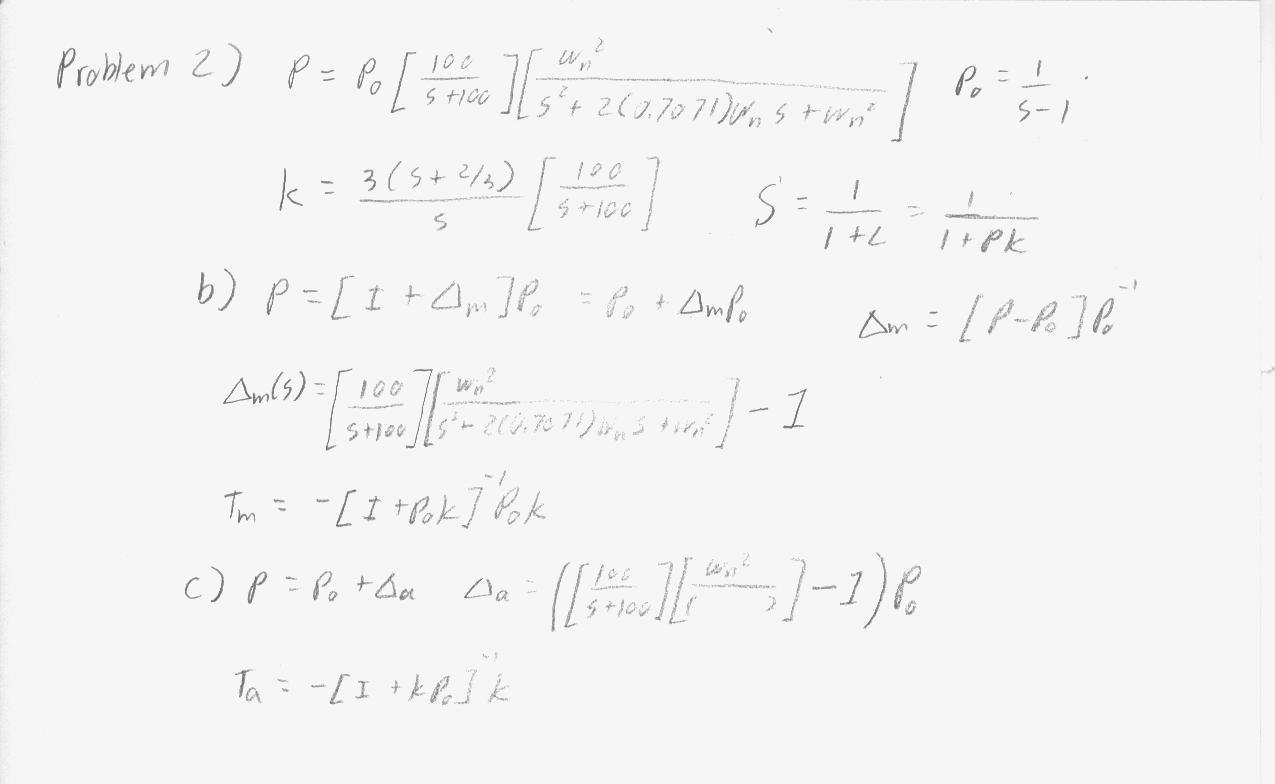 Problem 2) P = P₀ [100/(s+100)] [ωn²/(s² + 2(0.7071)ωn s + ωn²)] P₀ = 1/(s-1)
k = 3(s + 2/3)/s [100/(s+100)] S = 1/(1+L) = 1/(1+Pk)
b) P = [I + Δm]P₀ = P₀ + ΔmP₀ Δm = [P-P₀]P₀⁻¹
Δm(s) = [100/(s+100)] [ωn²/(s² + 2(0.7071)ωn s + ωn²)] - 1
Tm = -[I + P₀k]⁻¹P₀k
c) P = P₀ + Δa Δa = ([100/(s+100)] [ωn²/( )] - 1)P₀
Ta = -[I + kP₀]⁻¹k